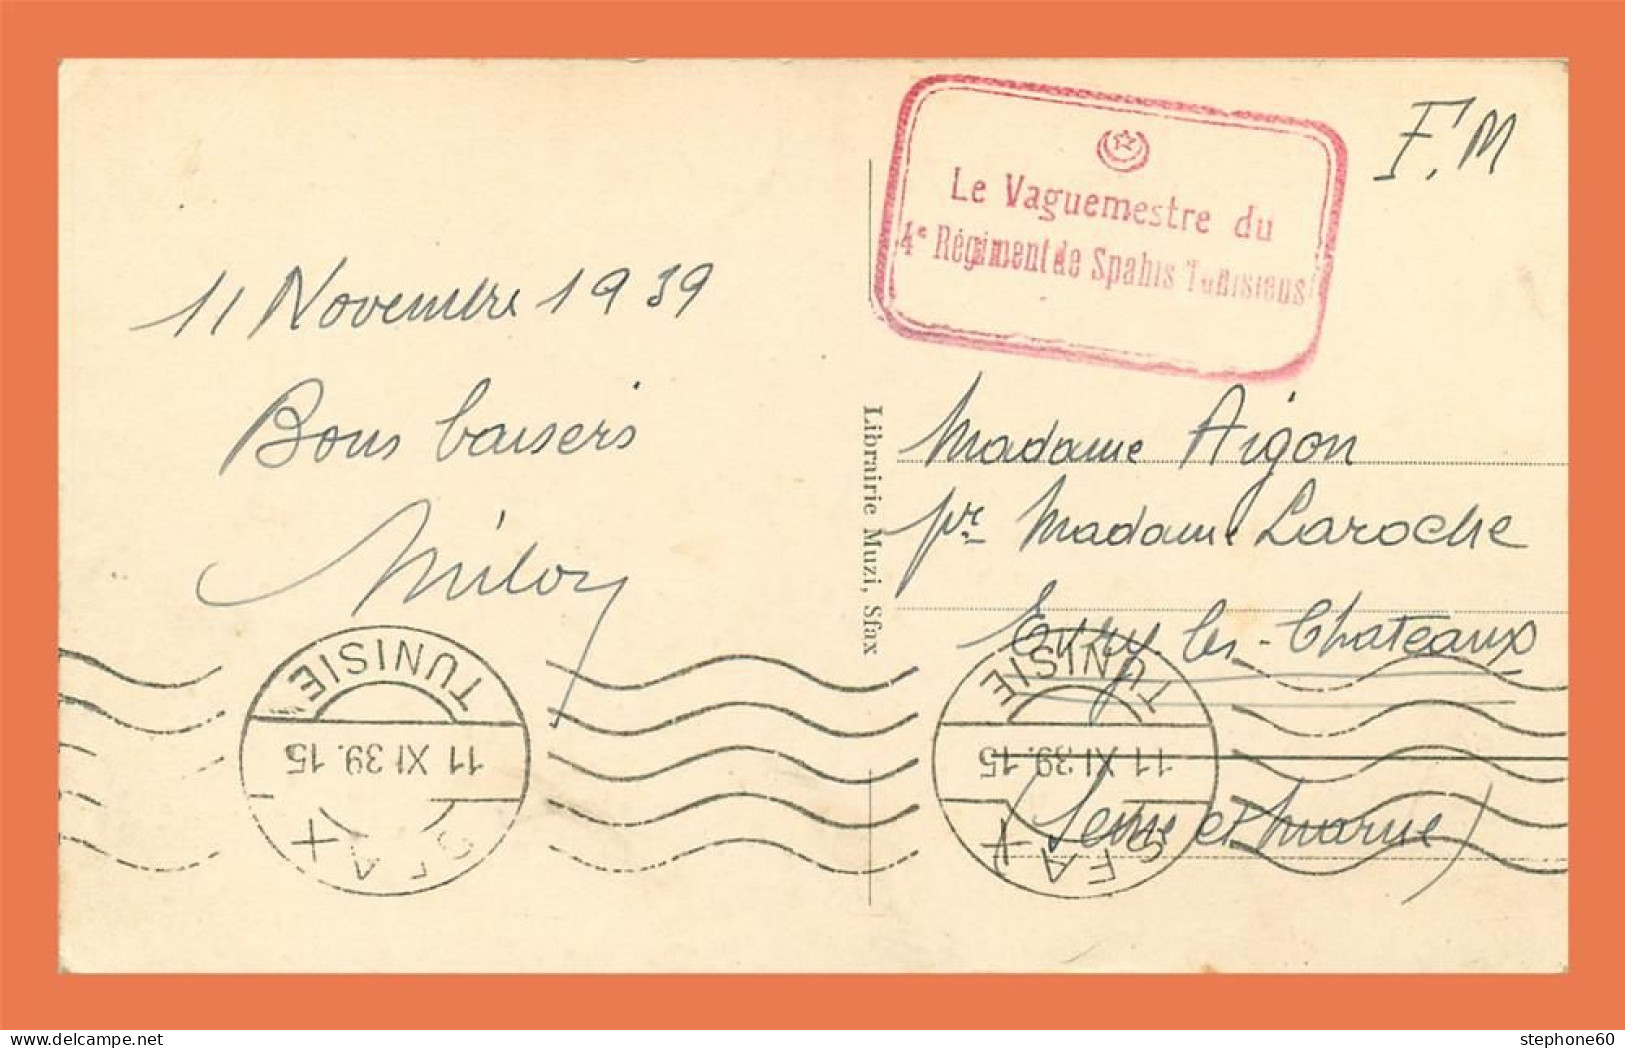 Le Vaguemestre du
4e Régiment de Spahis Tunisiens
F.M
11 Novembre 1939
Bons baisers
Librairie Muzi, Sfax
Madame Aigon
pr Madame Laroche
Evry-les-Chateaux
(Seine et Marne)
TUNISIE
11 XI 39.15
SFAX
TUNISIE
11 XI 39.15
SFAX
www.delcampe.net
stephone60